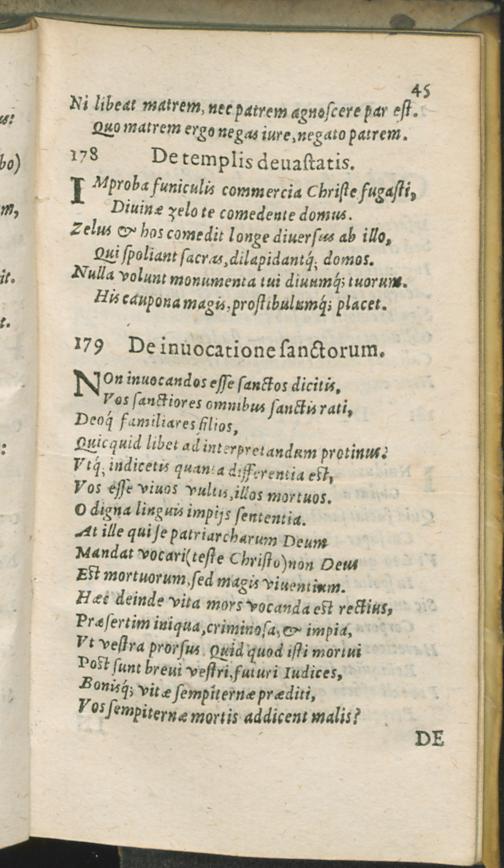 45
Ni libeat matrem, nec patrem agnoſcere par eſt.
Quo matrem ergo negas iure, negato patrem.
178 De templis deuaſtatis.
IMproba funiculis commercia Chriſte fugaſti,
Diuinæ zelo te comedente domus.
Zelus & hos comedit longe diuerſus ab illo,
Qui ſpoliant ſacras, dilapidantq́; domos.
Nulla volunt monumenta tui diuumq́; tuorum.
His caupona magis, proſtibulumq́; placet.
179 De inuocatione ſanctorum.
NOn inuocandos eſſe ſanctos dicitis,
Vos ſanctiores omnibus ſanctis rati,
Deoq́ familiares filios,
Quicquid libet ad interpretandum protinus?
Vtq́, indicetis quanta differentia eſt,
Vos eſſe viuos vultis, illos mortuos.
O digna linguis impijs ſententia.
At ille qui ſe patriarcharum Deum
Mandat vocari (teſte Chriſto) non Deus
Eſt mortuorum, ſed magis viuentium.
Hæc deinde vita mors vocanda eſt rectius,
Præſertim iniqua, criminoſa, & impia,
Vt veſtra prorſus. Quid quod iſti mortui
Poſt ſunt breui veſtri, futuri Iudices,
Bonisq́; vitæ ſempiternæ præditi,
Vos ſempiternæ mortis addicent malis?
DE
us:
bo)
m,
it.
t.
: